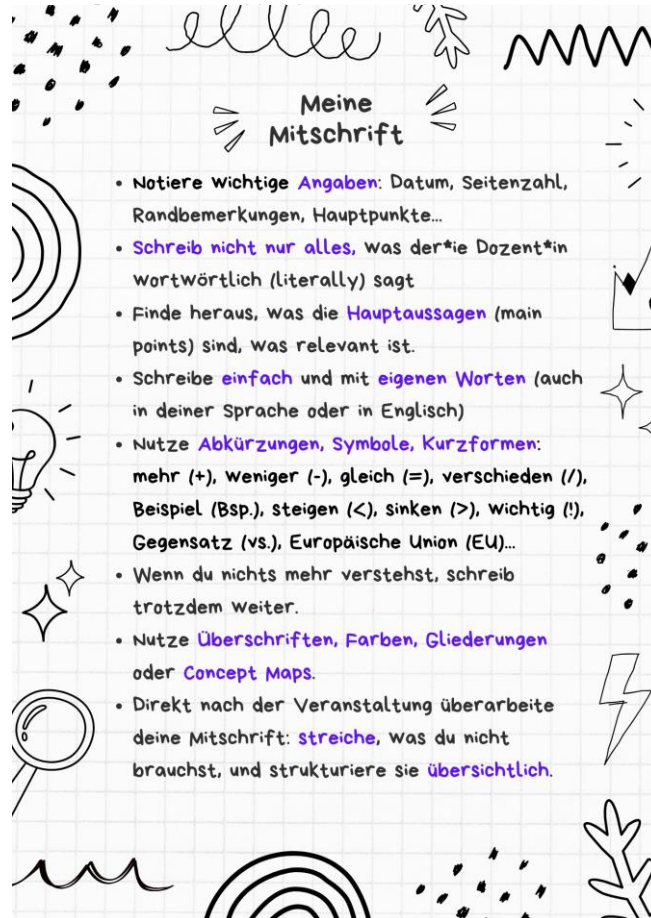 Meine
Mitschrift
• Notiere wichtige Angaben: Datum, Seitenzahl,
Randbemerkungen, Hauptpunkte...
• Schreib nicht nur alles, was der*ie Dozent*in
wortwörtlich (literally) sagt
• Finde heraus, was die Hauptaussagen (main
points) sind, was relevant ist.
• Schreibe einfach und mit eigenen Worten (auch
in deiner Sprache oder in Englisch)
• Nutze Abkürzungen, Symbole, Kurzformen:
mehr (+), weniger (-), gleich (=), verschieden (/),
Beispiel (Bsp.), steigen (<), sinken (>), wichtig (!),
Gegensatz (vs.), Europäische Union (EU)...
• Wenn du nichts mehr verstehst, schreib
trotzdem weiter.
• Nutze Überschriften, Farben, Gliederungen
oder Concept Maps.
• Direkt nach der Veranstaltung überarbeite
deine Mitschrift: streiche, was du nicht
brauchst, und strukturiere sie übersichtlich.